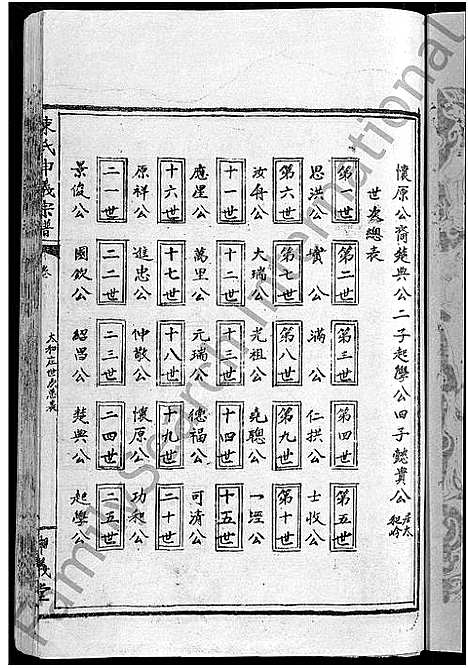 懷原公裔楚典公二子起學公四子懿貴公居太和岭
世表總表
第一世 第二世 第三世 第四世 第五世
思洪公 實公 滿公 仁拱公 士收公
第六世 第七世 第八世 第九世 第十世
汝舟公 大瑞公 光祖公 堯聰公 一經公
十一世 十二世 十三世 十四世 十五世
應星公 萬里公 元瑞公 德福公 可清公
十六世 十七世 十八世 十九世 二十世
原祥公 進忠公 仲敬公 懷原公 功和公
二一世 二二世 二三世 二四世 二五世
景俊公 國欽公 紹昌公 楚典公 起學公
陳氏中義宗譜
卷
太和庄世表總表
義堂
FamilySearch International